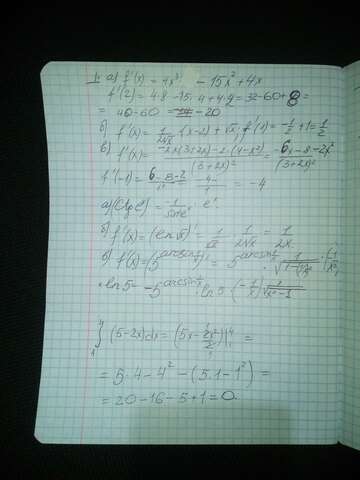 1. а) f'(x) = 4x³ - 15x² + 4x
f'(2) = 4·8 - 15·4 + 4·2 = 32 - 60 + 8 =
= 40 - 60 = -20
б) f'(x) = 1/2√x · (x-2) + √x; f'(1) = -1/2 + 1 = 1/2
в) f'(x) = -2x(3+2x) - 2·(4-x²) / (3+2x)² = -6x - 8 - 2x² / (3+2x)²
f'(-1) = 6-8-2 / 1² = -4/1 = -4
б) f'(x) = (ln√x)' = 1/√x · 1/2√x = 1/2x
в) f'(x) = (5^arcsin 1/x)' = 5^arcsin 1/x
· ln5 = -5^arcsin 1/x ln5
∫ (5-2x)dx = (5x - 2x²/2)|
= 5·4 - 4² - (5·1 - 1²) =
= 20 - 16 - 5 + 1 = 0